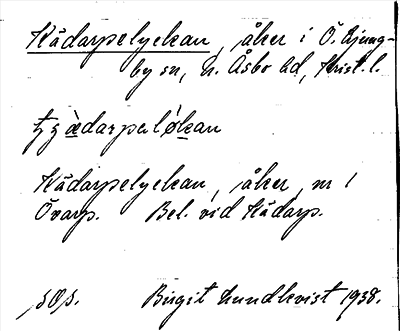 Kädarpelyckan, åker i Ö. Ljung-
by sn, N. Åsbo hd, Krist. l.
Kädarpelyckan, åker, nr 1
Övarp. Bel. vid Kädarp.
Birgit Lundkvist 1938.